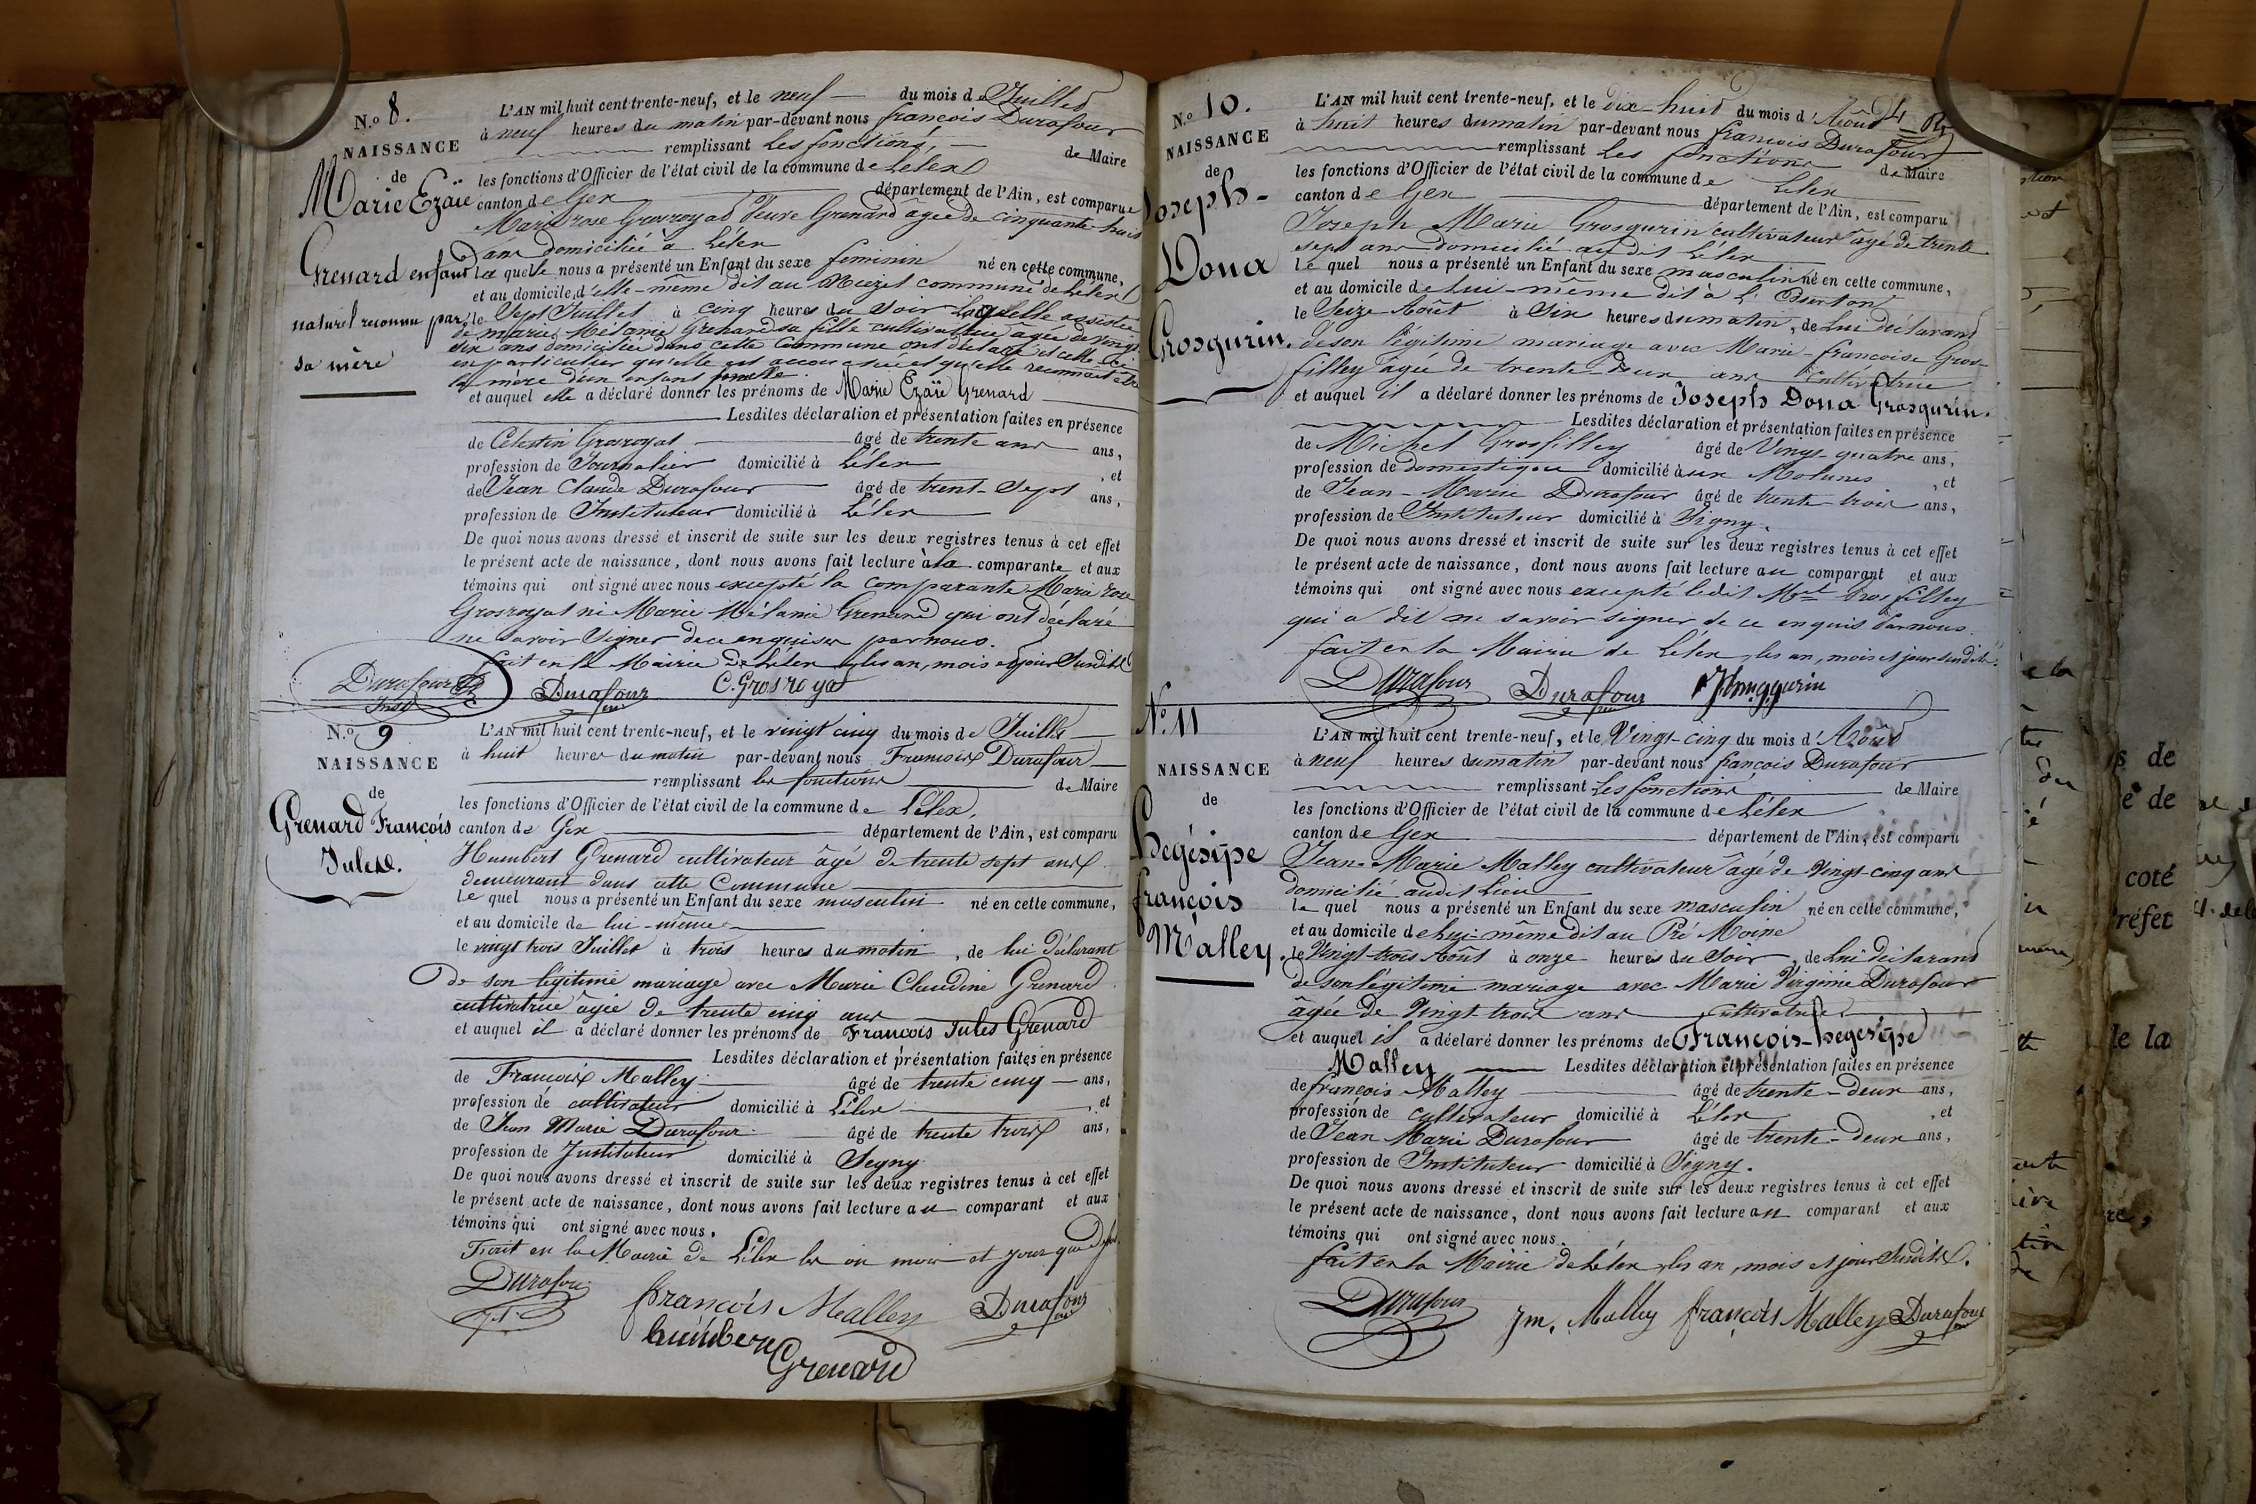 N.o 8.
NAISSANCE
de
Marie Ezaïe
Grenard enfant
naturel reconnu par
sa mère
L'AN mil huit cent trente-neuf, et le neuf du mois de Juillet
à neuf heures du matin par-devant nous françois Durafour
remplissant les fonctions de Maire
les fonctions d'Officier de l'état civil de la commune de Lélex
canton de Gex département de l'Ain, est comparue
Marie rose Grosroyat Veuve Grenard âgée de cinquante-huit
ans domiciliée à Lélex
la quelle nous a présenté un Enfant du sexe feminin né en cette commune,
et au domicile d'elle-même dit au Niezet commune de Lélex
le Sept Juillet à cinq heures du Soir Laquelle assistée
de marie Mélanie Grenard sa fille cultivatrice âgée de vingt
six ans domiciliée dans cette Commune ont déclaré et celle-ci
en particulier qu'elle est accouchée et qu'elle reconnait être
la mère d'un enfant femelle
et auquel elle a déclaré donner les prénoms de Marie Ezaïe Grenard
Lesdites déclaration et présentation faites en présence
de Célestin Grosroyat âgé de trente ans ans,
profession de Journalier domicilié à Lélex , et
de Jean Claude Durafour âgé de trent-Sept ans,
profession de Instituteur domicilié à Lélex
De quoi nous avons dressé et inscrit de suite sur les deux registres tenus à cet effet
le présent acte de naissance, dont nous avons fait lecture à la comparante et aux
témoins qui ont signé avec nous excepté la comparante Marie rose
Grosroyat ni Marie Mélanie Grenard qui ont déclaré
ne savoir Signer de ce enquises par nous.
fait en la Mairie de Lélex les an, mois et jour Susdits
Durafour
Inst
Durafour
C. Grosroyat
N.o 9
NAISSANCE
de
Grenard François
Jules.
L'AN mil huit cent trente-neuf, et le vingt cinq du mois de Juillet
à huit heures du matin par-devant nous François Durafour
remplissant les fonctions de Maire
les fonctions d'Officier de l'état civil de la commune de Lélex,
canton de Gex département de l'Ain, est comparu
Humbert Grenard cultivateur âgé de trente sept ans
demeurant dans cette Commune
le quel nous a présenté un Enfant du sexe masculin né en cette commune,
et au domicile de lui-même
le vingt trois Juillet à trois heures du matin, de lui déclarant
de son légitime mariage avec Marie Claudine Grenard
cultivatrice âgée de trente cinq ans
et auquel il a déclaré donner les prénoms de François Jules Grenard
Lesdites déclaration et présentation faites en présence
de François Malley âgé de trente cinq ans,
profession de cultivateur domicilié à Lélex , et
de Jean Marie Durafour âgé de trente trois ans,
profession de Instituteur domicilié à Segny
De quoi nous avons dressé et inscrit de suite sur les deux registres tenus à cet effet
le présent acte de naissance, dont nous avons fait lecture au comparant et aux
témoins qui ont signé avec nous.
Fait en la Mairie de Lélex les an mois et jour que dessus.
Durafour
françois Malley
Durafour
humbert
Grenard
N.o 10.
NAISSANCE
de
Joseph-
Dona
Grosgurin.
L'AN mil huit cent trente-neuf, et le dix-huit du mois d'Août
à huit heures du matin par-devant nous françois Durafour
remplissant les fonctions de Maire
les fonctions d'Officier de l'état civil de la commune de Lélex
canton de Gex département de l'Ain, est comparu
Joseph Marie Grosgurin cultivateur âgé de trente
sept ans domicilié au dit Lélex
le quel nous a présenté un Enfant du sexe masculin né en cette commune,
et au domicile de Lui-même dit à L'
le Seize Août à Six heures du matin, de Lui déclarant
de son légitime mariage avec Marie-françoise Gros-
filley âgée de trente-deux ans cultivatrice
et auquel il a déclaré donner les prénoms de Joseph Dona Grosgurin.
Lesdites déclaration et présentation faites en présence
de Michel Grosfilley âgé de Vingt-quatre ans,
profession de domestique domicilié à aux Molunes , et
de Jean-Marie Durafour âgé de trente-trois ans,
profession de Instituteur domicilié à Segny.
De quoi nous avons dressé et inscrit de suite sur les deux registres tenus à cet effet
le présent acte de naissance, dont nous avons fait lecture au comparant et aux
témoins qui ont signé avec nous excepté ledit Mel Grosfilley
qui a dit ne savoir signer de ce enquis par nous.
fait en la Mairie de Lélex, les an, mois et jour susdits.
Durafour
Durafour
N.o 11
NAISSANCE
de
hegésipe
françois
Malley.
L'AN mil huit cent trente-neuf, et le Vingt-cinq du mois d'Août
à neuf heures du matin par-devant nous françois Durafour
remplissant les fonctions de Maire
les fonctions d'Officier de l'état civil de la commune de Lélex
canton de Gex département de l'Ain, est comparu
Jean-Marie Malley cultivateur âgé de Vingt-cinq ans
domicilié audit Lieu
le quel nous a présenté un Enfant du sexe masculin né en cette commune,
et au domicile de Lui-même dit au Pré Moine
le Vingt-trois Août à onze heures du Soir, de Lui déclarant
de son légitime mariage avec Marie Virginie Durafour
âgée de Vingt trois ans cultivatrice
et auquel il a déclaré donner les prénoms de François-hegesipe
Malley Lesdites déclaration et présentation faites en présence
de françois Malley âgé de trente-deux ans,
profession de cultivateur domicilié à Lélex , et
de Jean Marie Durafour âgé de trente-deux ans,
profession de Instituteur domicilié à Segny.
De quoi nous avons dressé et inscrit de suite sur les deux registres tenus à cet effet
le présent acte de naissance, dont nous avons fait lecture au comparant et aux
témoins qui ont signé avec nous.
fait en la Mairie de Lélex, les an, mois et jour Susdits.
Durafour
Jm. Malley
françois Malley
Durafour
s de
e de
coté
réfet
de la